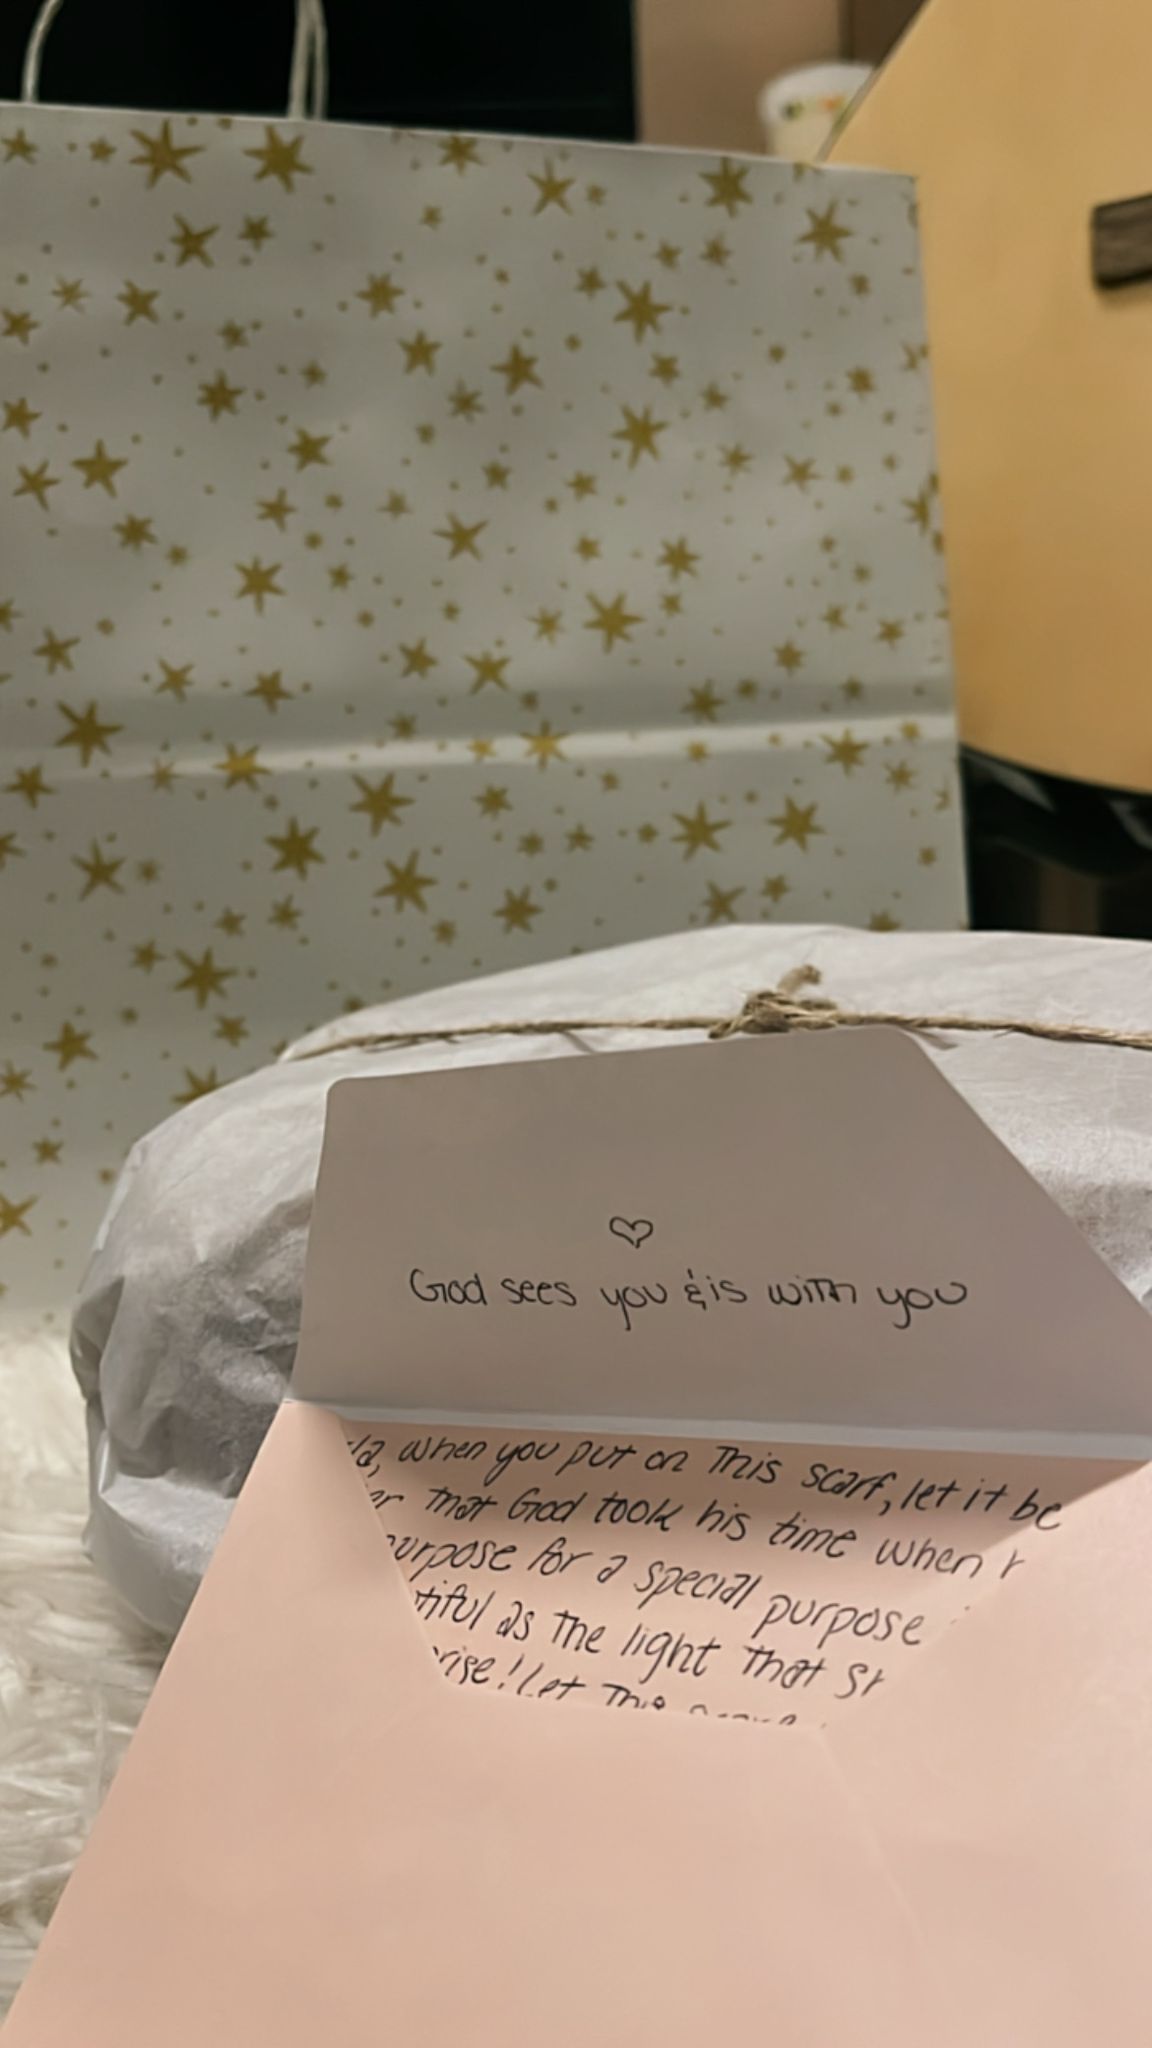 God sees you & is with you
when you put on this scarf, let it be
that God took his time when
purpose for a special purpose
as the light that
Let this